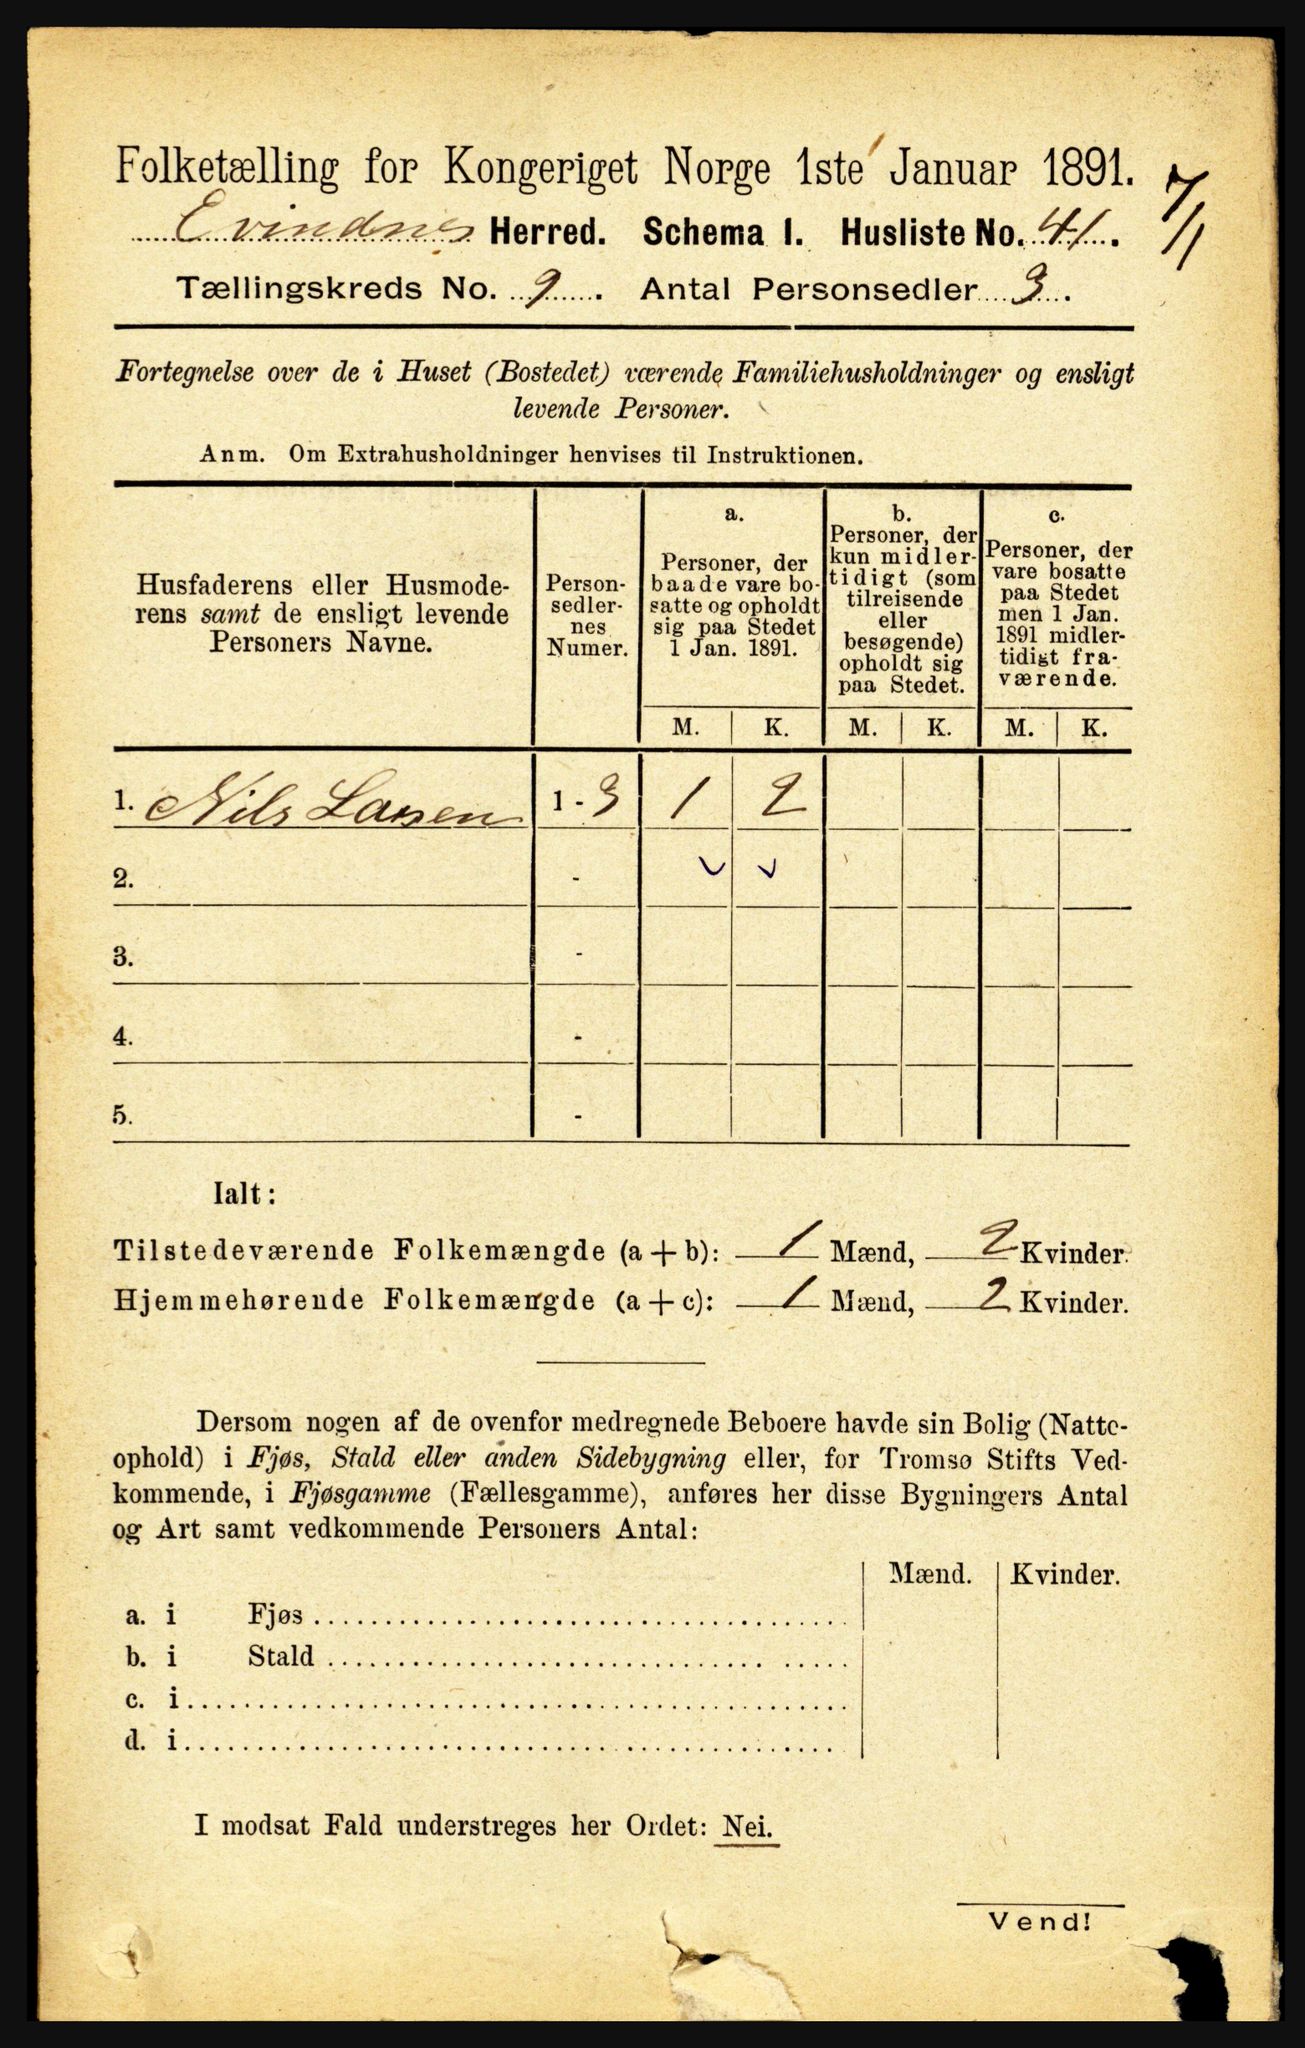 Folketælling for Kongeriget Norge 1ste Januar 1891.
7/1
Evindnes Herred. Schema I. Husliste No. 41.
Tællingskreds No. 9. Antal Personsedler 3.
Fortegnelse over de i Huset (Bostedet) værende Familiehusholdninger og ensligt
levende Personer.
Anm. Om Extrahusholdninger henvises til Instruktionen.
Husfaderens eller Husmode-
rens samt de ensligt levende
Personers Navne.
Person-
sedler-
nes
Numer.
a.
Personer, der
baade vare bo-
satte og opholdt
sig paa Stedet
1 Jan. 1891.
b.
Personer, der
kun midler-
tidigt (som
tilreisende
eller
besøgende)
opholdt sig
paa Stedet.
c.
Personer, der
vare bosatte
paa Stedet
men 1 Jan.
1891 midler-
tidigt fra-
værende.
M. K. M. K. M. K.
1. Nils Larsen 1 - 3 1 2
2. -
3. -
4. -
5. -
Ialt:
Tilstedeværende Folkemængde (a + b): 1 Mænd, 2 Kvinder.
Hjemmehørende Folkemængde (a + c): 1 Mænd, 2 Kvinder.
Dersom nogen af de ovenfor medregnede Beboere havde sin Bolig (Natte-
ophold) i Fjøs, Stald eller anden Sidebygning eller, for Tromsø Stifts Ved-
kommende, i Fjøsgamme (Fællesgamme), anføres her disse Bygningers Antal
og Art samt vedkommende Personers Antal:
Mænd. Kvinder.
a. i Fjøs
b. i Stald
c. i
d. i
I modsat Fald understreges her Ordet: Nei.
Vend!